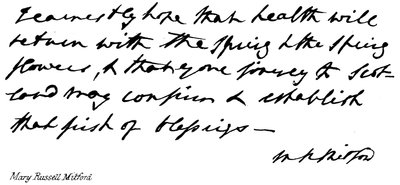 I earnestly hope that health will
return with the Spring & the Spring
flowers, & that your journey to Scot-
land may confirm & establish
that first of blessings —
M R Mitford
Mary Russell Mitford